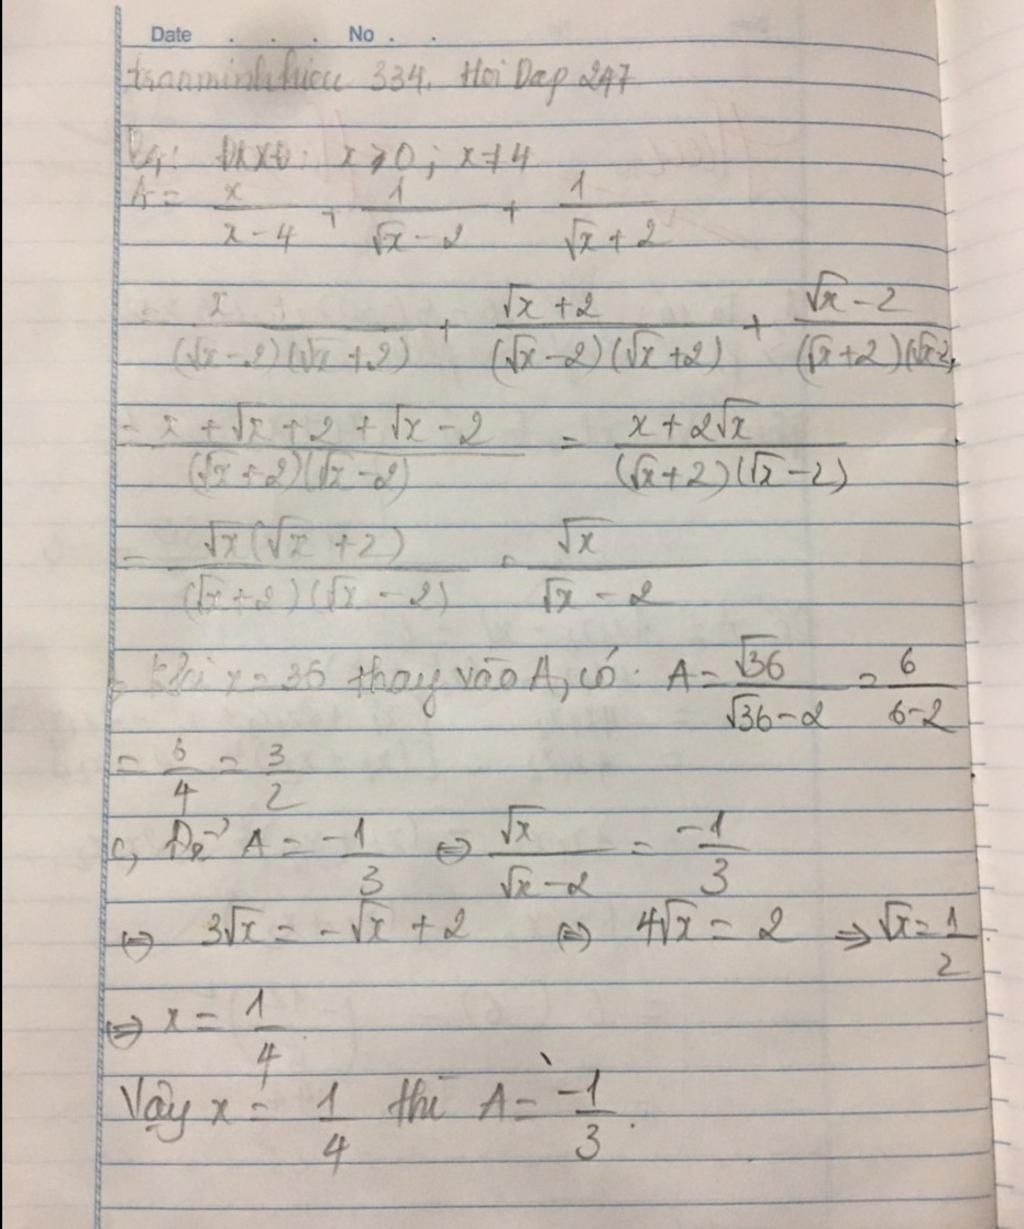 Date . . . No . .
tranminhhieu 334. Hoi Dap 247
ĐKXĐ: x ⩾ 0 ; x ≠ 4
A = x/(x-4) + 1/(√x-2) + 1/(√x+2)
= x/((√x-2)(√x+2)) + (√x+2)/((√x-2)(√x+2)) + (√x-2)/((√x+2)(√x-2)
= (x+√x+2+√x-2)/((√x+2)(√x-2)) = (x+2√x)/((√x+2)(√x-2))
= √x(√x+2)/((√x+2)(√x-2)) = √x/(√x-2)
Khi x = 36 thay vào A, có: A = √36/(√36-2) = 6/(6-2)
= 6/4 = 3/2
c, Để A = -1/3 ⇔ √x/(√x-2) = -1/3
⇔ 3√x = -√x + 2 ⇔ 4√x = 2 ⇒ √x = 1/2
⇔ x = 1/4
Vậy x = 1/4 thì A = -1/3.